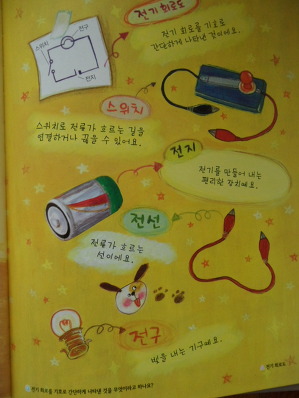 전기 회로도
전구
스위치
전지
전기 회로를 기호로
간단하게 나타낸 것이에요.
스위치
스위치로 전류가 흐르는 길을
연결하거나 끊을 수 있어요.
전지
전기를 만들어 내는
편리한 장치예요.
전선
전류가 흐르는
선이에요.
전구
빛을 내는 기구예요.
전기 회로를 기호로 간단하게 나타낸 것을 무엇이라고 하나요?
전기 회로도